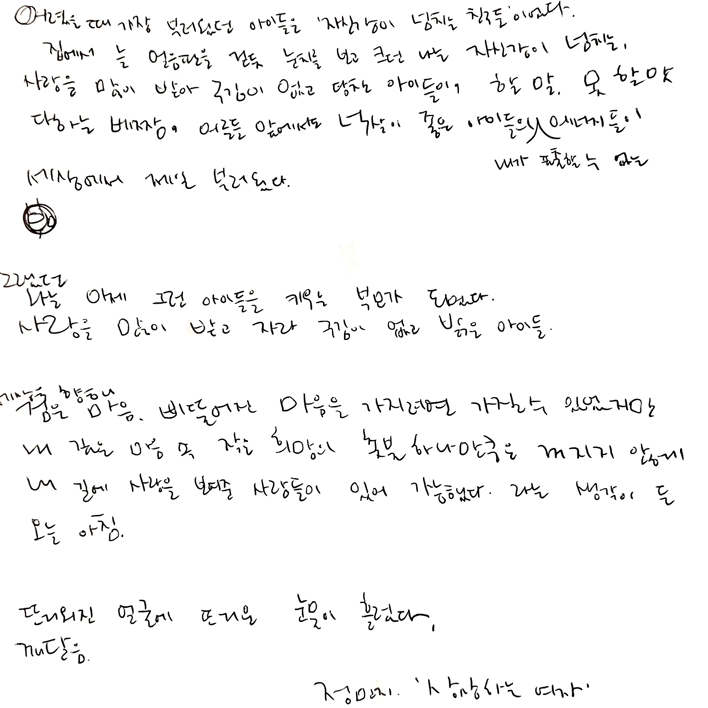 어렸을 때 가장 부러웠던 아이들은 '자신감이 넘치는 친구들'이었다.
집에서 늘 얼음판을 걷듯 눈치를 보고 크던 나는 자신감이 넘치는,
사랑을 많이 받아 구김이 없고 당찬 아이들이, 할 말, 못 할 말
다하는 배짱, 어른들 앞에서도 넉살이 좋은 아이들의 에너지들이
내가 표출할 수 없는
세상에서 제일 부러웠다.
그랬던
나는 이제 그런 아이들을 키우는 부모가 되었다.
사랑을 많이 받고 자라 구김이 없고 밝은 아이들.
세상을 향한
마음, 삐뚤어진 마음을 가지려면 가질 수 있었지만
내 깊은 마음 속 작은 희망의 촛불 하나만큼은 꺼지지 않게
내 곁에 사랑을 보태준 사람들이 있어 가능했다. 라는 생각이 든
오늘 아침.
뜨거워진 얼굴에 뜨거운 눈물이 흘렀다,
깨달음.
'상상하는 여자'